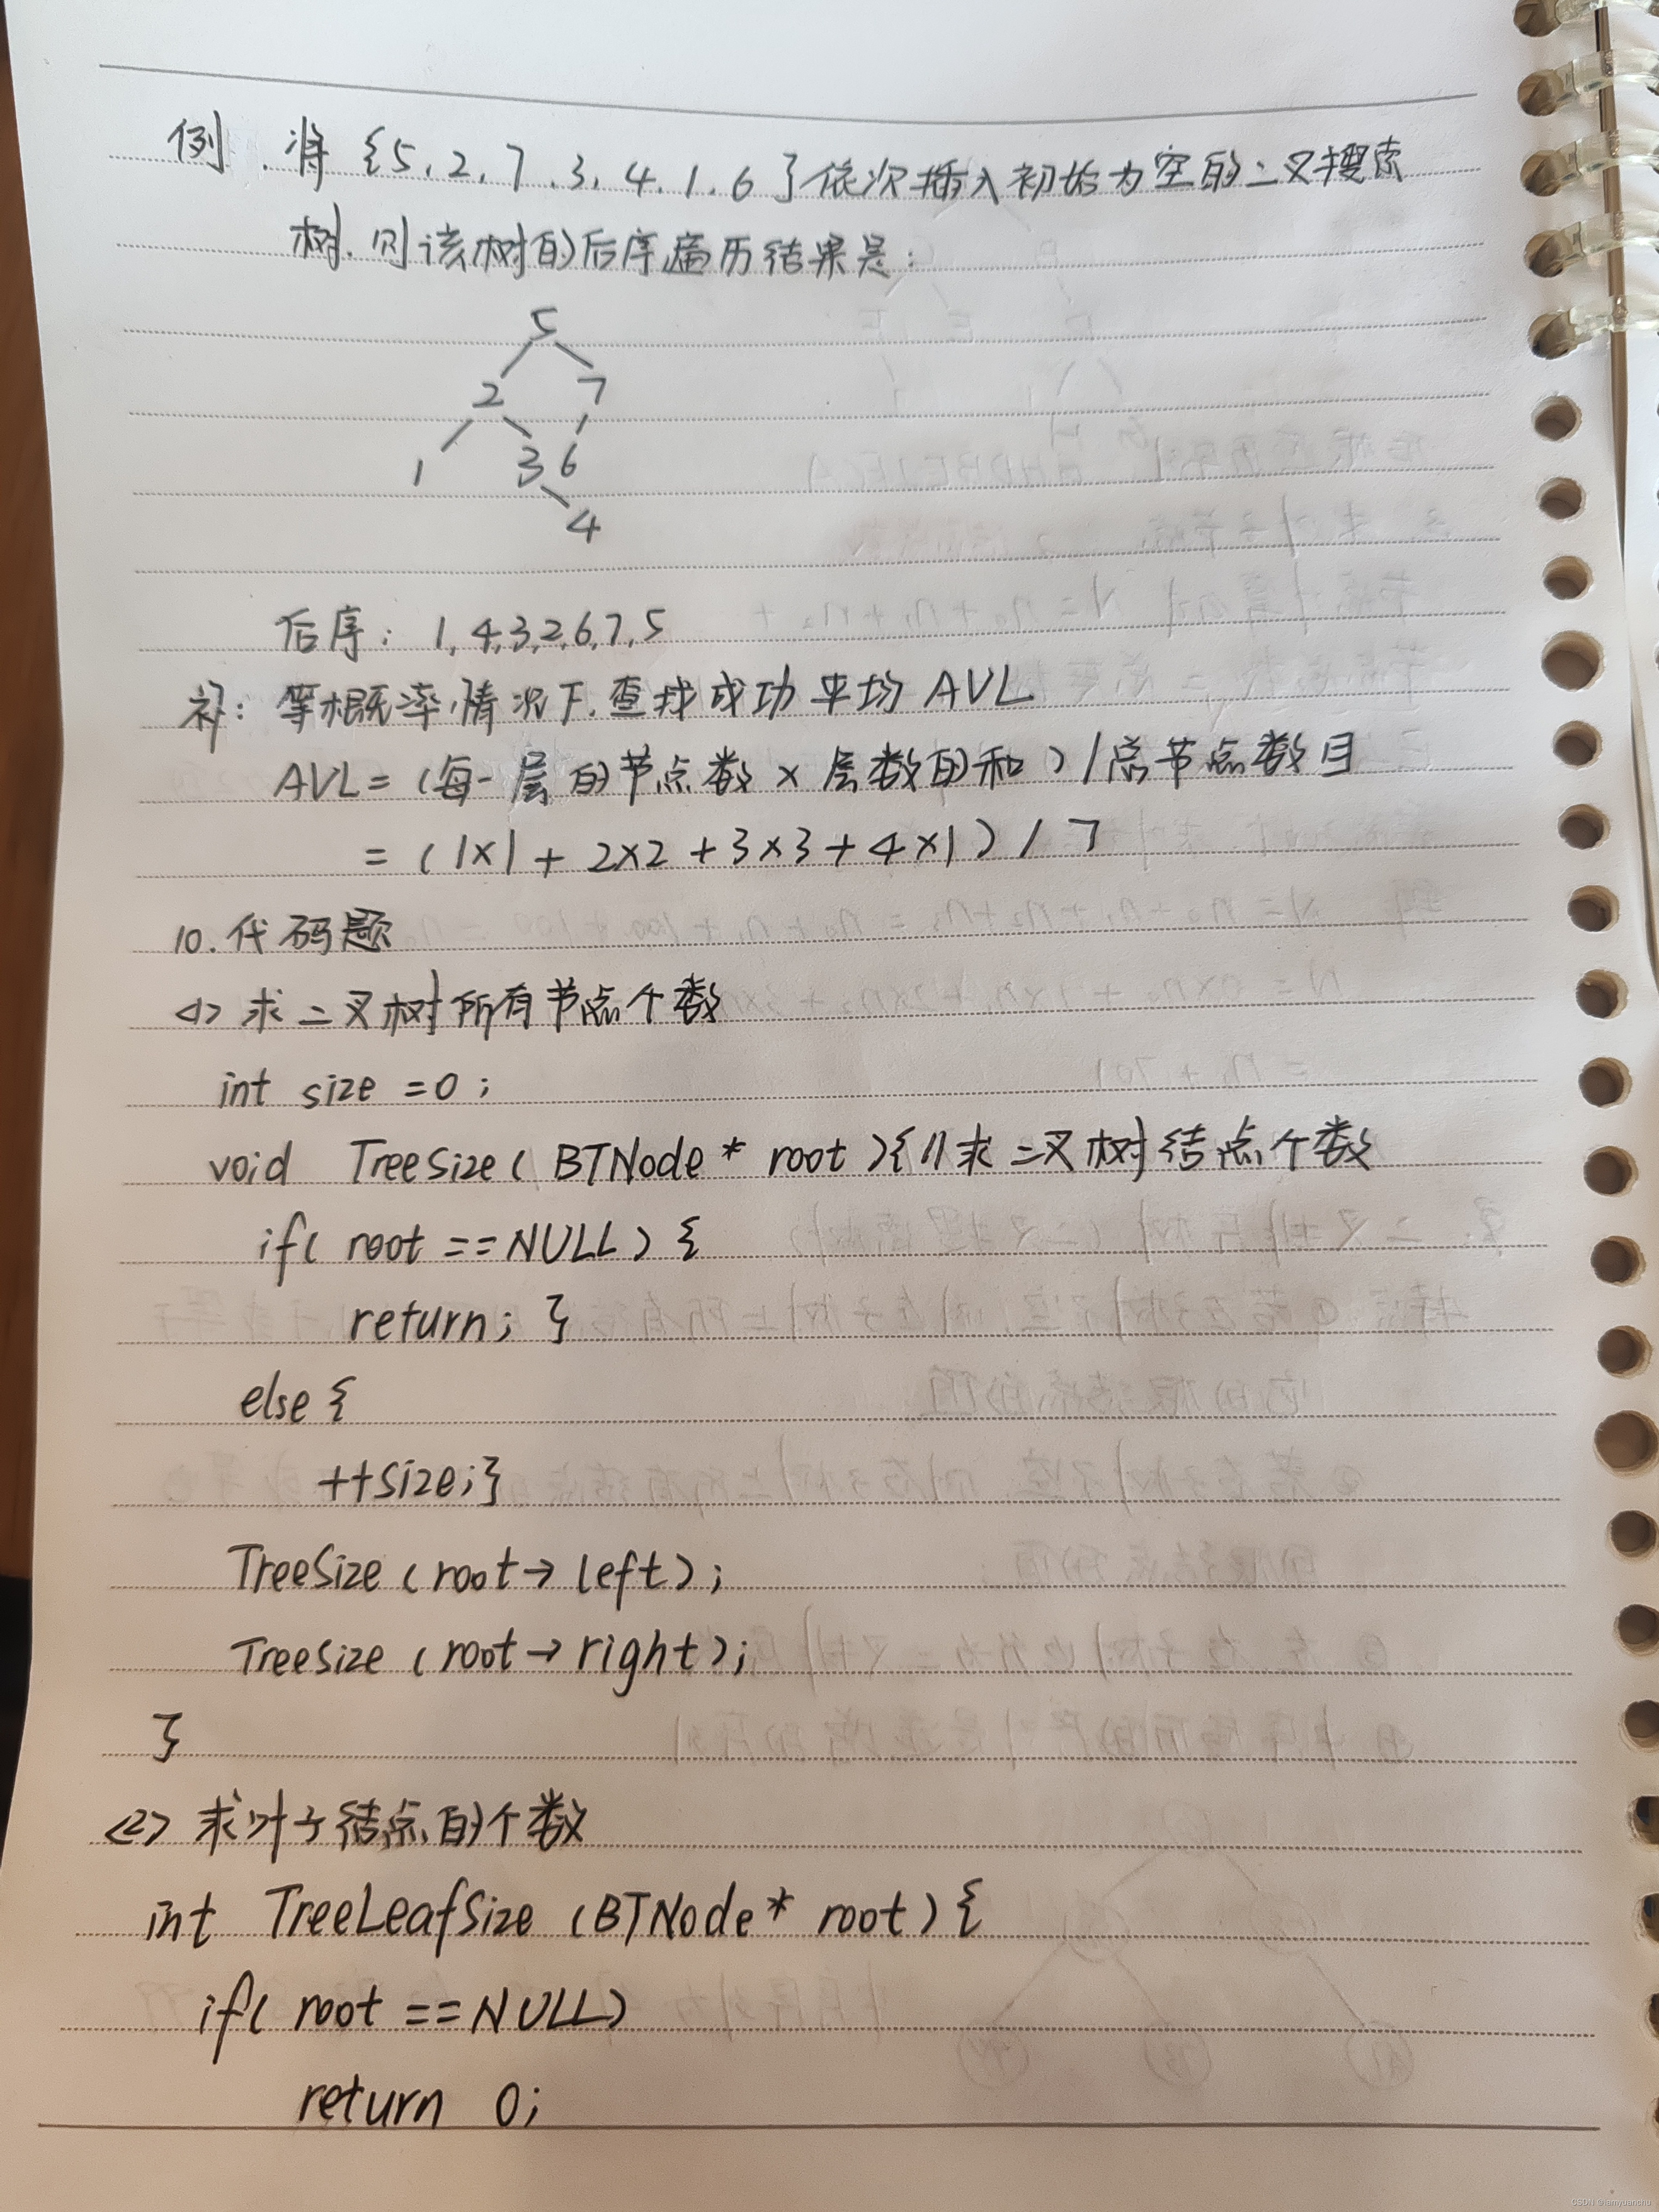 例. 将{5,2,7,3,4,1,6}依次插入初始为空的二叉搜索
树.则该树的后序遍历结果是:
5
2 7
1 3 6
4
后序: 1,4,3,2,6,7,5
补: 等概率情况下.查找成功平均AVL
AVL=(每一层的节点数×层数的和)/总节点数目
=(1×1+2×2+3×3+4×1)/7
10.代码题
<1> 求二叉树所有节点个数
int size =0;
void TreeSize( BTNode * root ){//求二叉树结点个数
if( root ==NULL) {
return; }
else {
++size;}
TreeSize (root→left);
TreeSize (root→right);
}
<2> 求叶子结点的个数
int TreeLeafSize (BTNode* root) {
if( root ==NULL)
return 0;